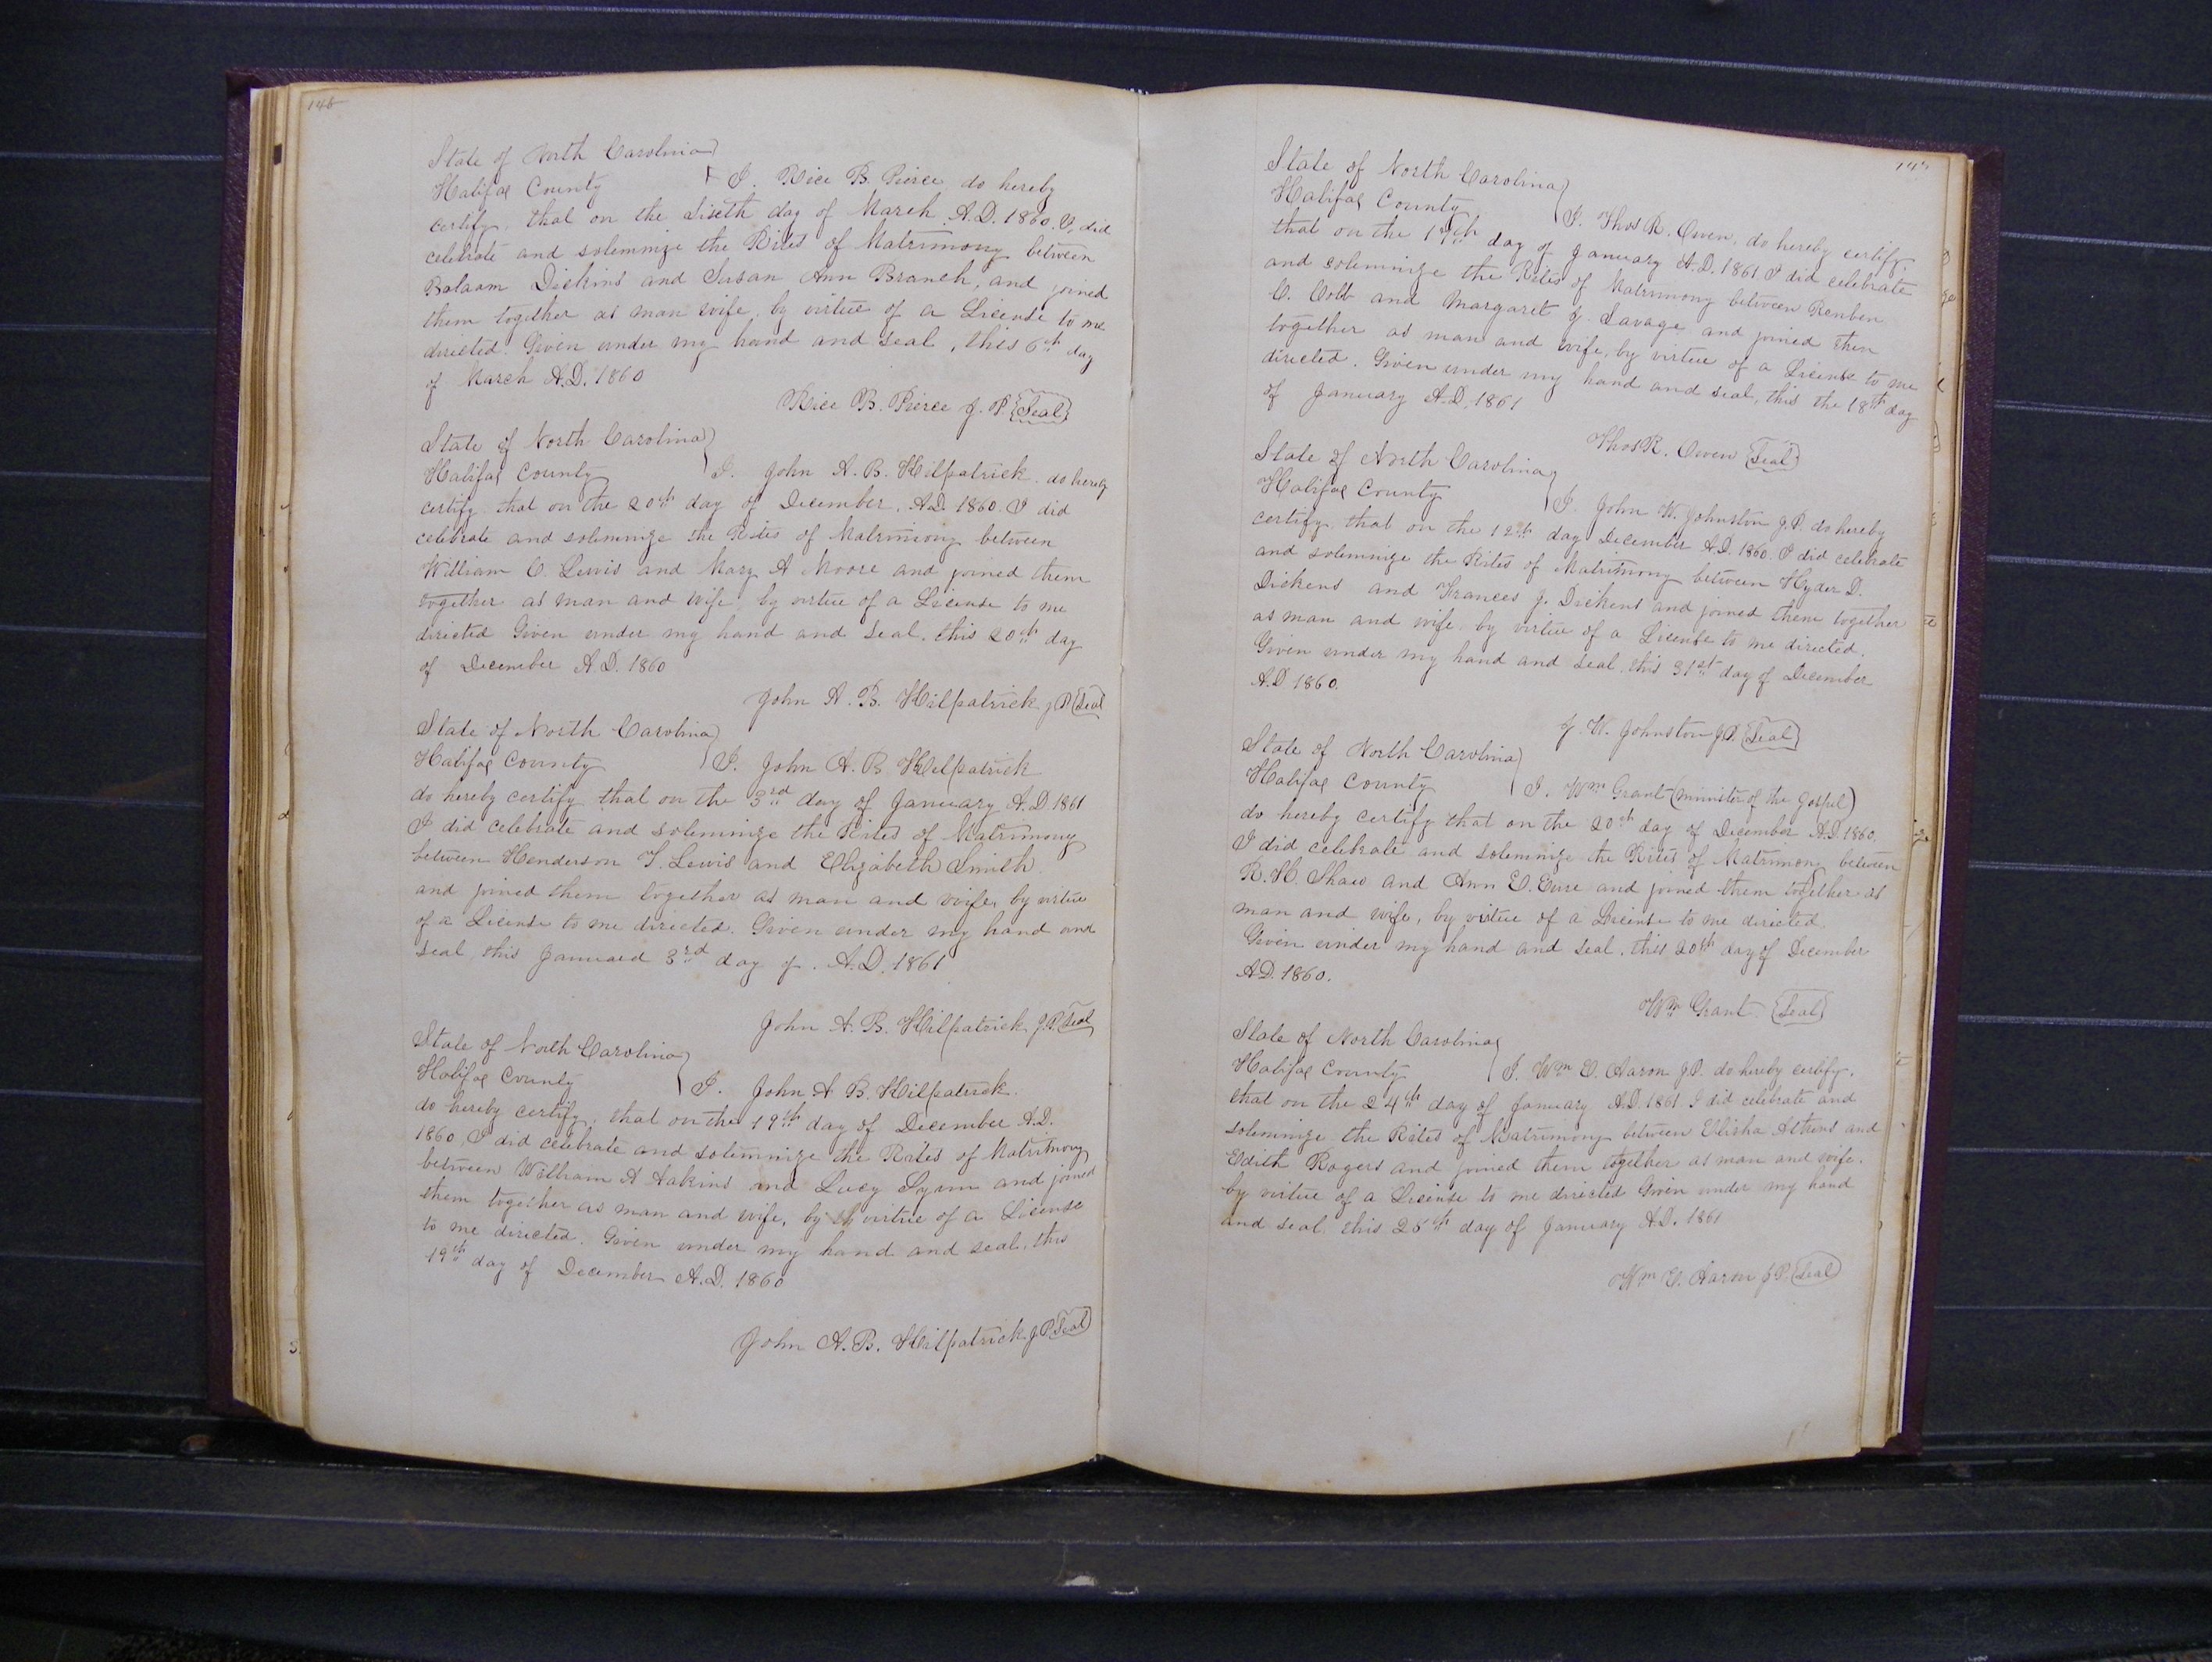 146
State of North Carolina
Halifax County I. Rice B. Pierce do hereby
certify, that on the Sixth day of March A.D. 1860. I, did
celebrate and solemnize the Rites of Matrimony between
Balaam Dickins and Susan Ann Branch, and joined
them together as man wife, by virtue of a License to me
directed. Given under my hand and seal, this 6th day
of March A.D. 1860
Rice B. Pierce J. P. Seal
State of North Carolina
Halifax County I. John A. B. Kilpatrick do hereby
certify that on the 20th day of December, A.D. 1860. I did
celebrate and solemnize the Rites of Matrimony between
William C. Lewis and Mary A Moore and joined them
together as man and wife, by virtue of a License to me
directed Given under my hand and seal, this 20th day
of December A.D. 1860
John A. B. Kilpatrick J P Seal
State of North Carolina
Halifax County I. John A. B. Kilpatrick
do hereby certify that on the 3rd day of January A.D 1861
I did celebrate and solemnize the Rites of Matrimony
between Henderson T. Lewis and Elizabeth Smith
and joined them together as man and wife, by virtue
of a License to me directed. Given under my hand and
seal this Januard 3rd day of. A.D. 1861
John A. B. Kilpatrick J.P. Seal
State of North Carolina
Halifax County I. John A B. Kilpatrick
do hereby certify, that on the 19th day of December A.D.
1860 I did celebrate and solemnize the Rites of Matrimony
between William A Hakins and Lucy and joined
them together as man and wife, by virtue of a License
to me directed. Given under my hand and seal, this
19th day of December A.D. 1860
John A. B. Kilpatrick J.P. Seal
147
State of North Carolina
Halifax County I. Thos R. Owen, do hereby certify
that on the 17th day of January A.D. 1861 I did celebrate
and solemnize the Rites of Matrimony between Reuben
C. Cobb and Margaret J. Savage and joined then
together as man and wife, by virtue of a License to me
directed. Given under my hand and seal, this the 18th day
of January A.D. 1861
Thos R. Owen Seal
State of North Carolina
Halifax County I. John W. Johnston J.P. do hereby
certify, that on the 12th day December A.D. 1860. I did celebrate
and solemnize the Rites of Matrimony between Hyder D.
Dickens and Frances J. Dickens and joined them together
as man and wife by virtue of a License to me directed.
Given under my hand and seal, this 31st day of December
A.D 1860.
J. W. Johnston J.P. Seal
State of North Carolina
Halifax County I. Wm Grant (minister of the Gospel)
do hereby certify that on the 20th day of December A.D. 1860.
I did celebrate and solemnize the Rites of Matrimony between
R. H. Shaw and Ann E. Eure and joined them together as
man and wife, by virtue of a License to me directed,
Given under my hand and seal, this 20th day of December
A.D. 1860.
Wm Grant. Seal
State of North Carolina
Halifax County I. Wm E. Aaron J.P. do hereby certify,
that on the 24th day of January A.D. 1861 I did celebrate and
solemnize the Rites of Matrimony between Elisha Athens and
Edith Rogers and joined them together as man and wife.
by virtue of a License to me directed Given under my hand
and seal, this 25th day of January A.D. 1861
Wm E. Aaron J.P. Seal